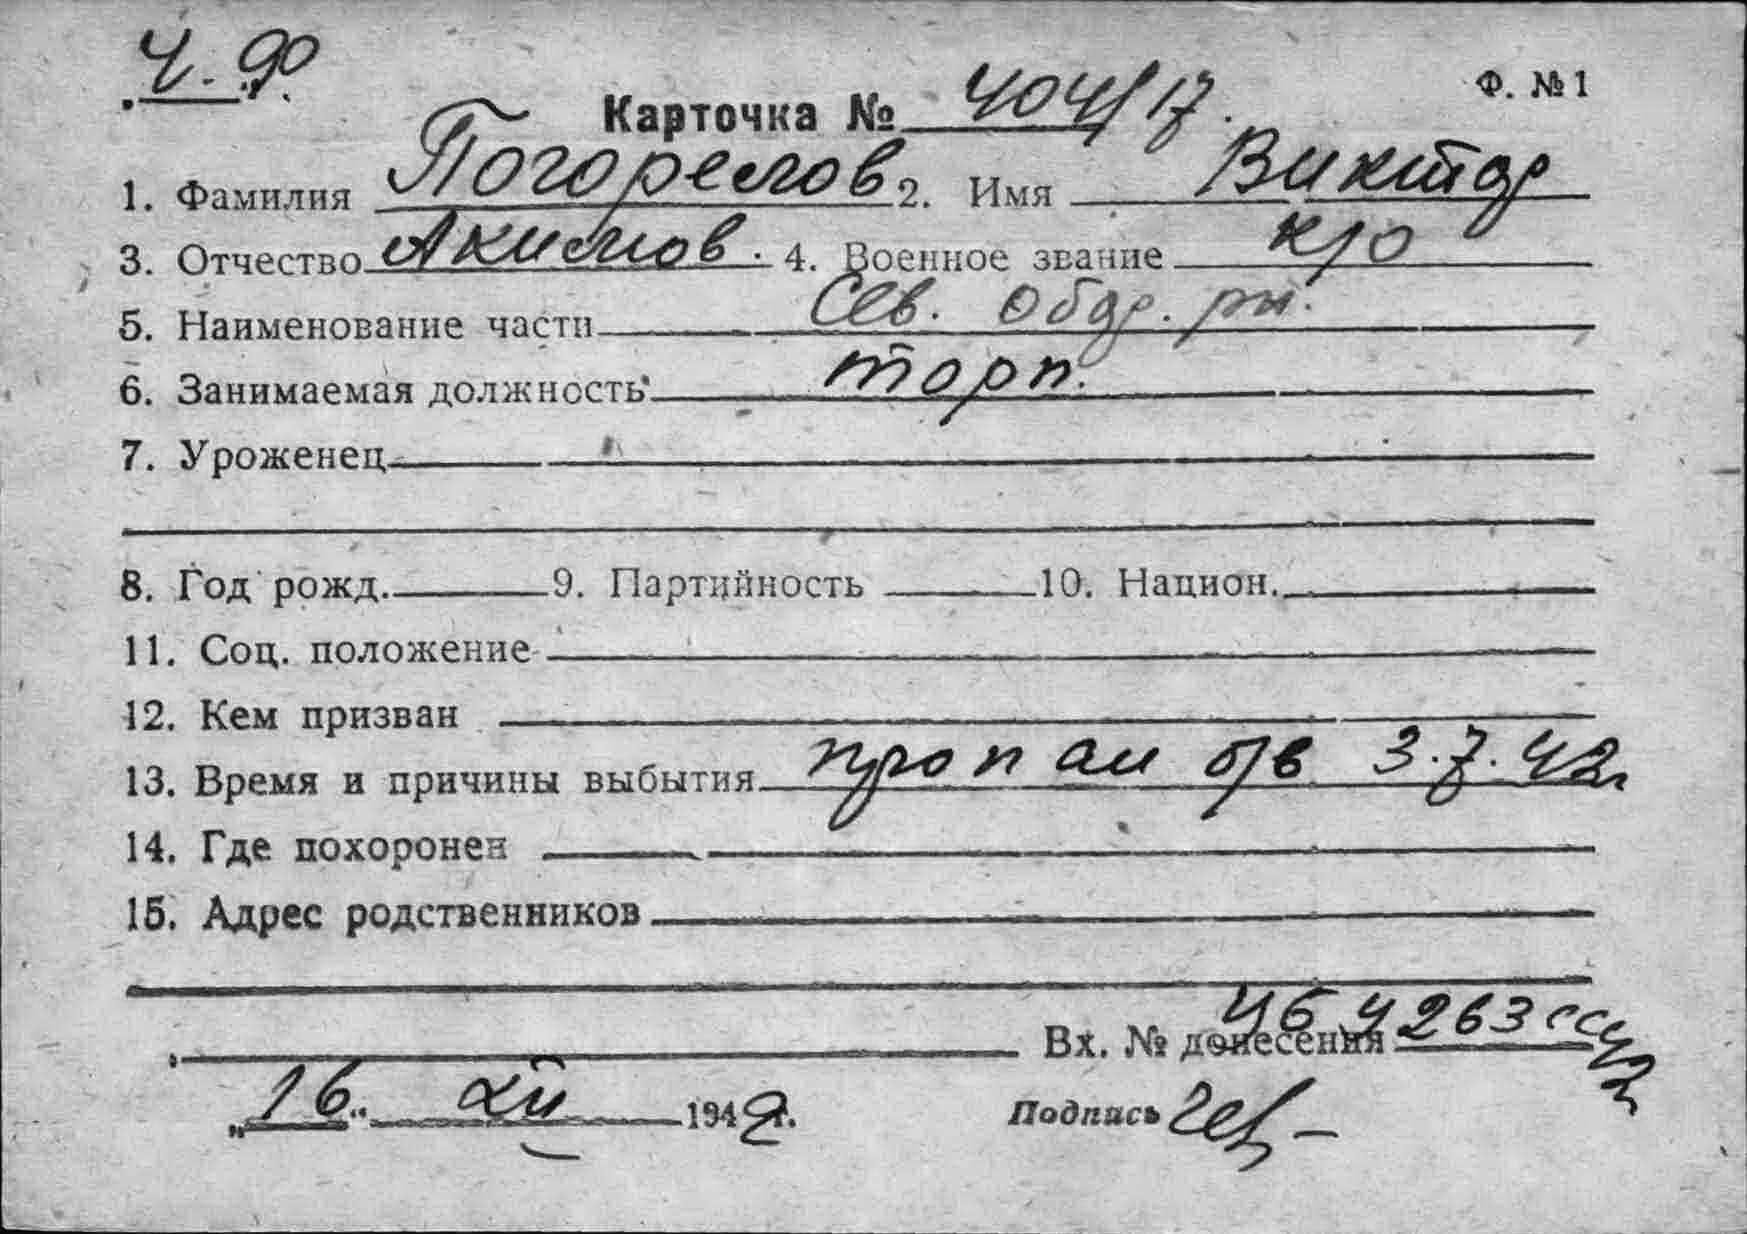 Ч. Ф.
Ф. №1
Карточка № 404/17.
1. Фамилия Погорелов 2. Имя Виктор
3. Отчество Акимов. 4. Военное звание к/о
5. Наименование части Сев. обор. рн.
6. Занимаемая должность торп.
7. Уроженец
8. Год рожд. 9. Партийность 10. Национ.
11. Соц. положение
12. Кем призван
13. Время и причины выбытия пропал б/в 3.7.42г
14. Где похоронен
15. Адрес родственников
Вх. № донесения 4263сс 42
„16“ XII 1942г.
Подпись